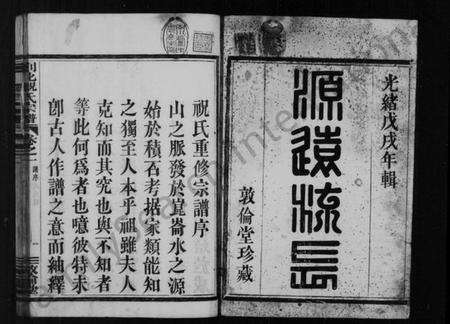 光緒戊戌年輯
源遠流長
敦倫堂珍藏
祝氏重修宗譜序
山之脈發於崑崙水之源
始於積石考据家類能知
之獨至人本乎祖雖夫人
克知而其究也與不知者
等此何為者也噫彼特未
卽古人作譜之意而紬釋